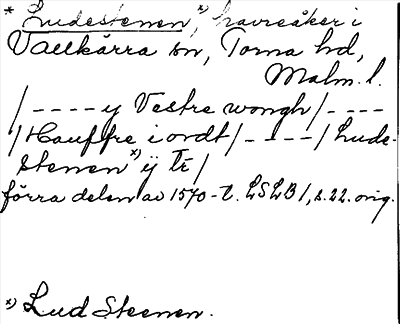 * Ludestenen,*) havreåker i
Vallkärra sn, Torna hd,
Malm. l.
/ - - - - y Vestre wongh / - - - -
/ Hauffre i ordt / - - - - / Lude-
stenen *) ÿ tr /
förra delen av 1570-t. LSLB 1, s. 22. orig.
*) Lud Steenen.